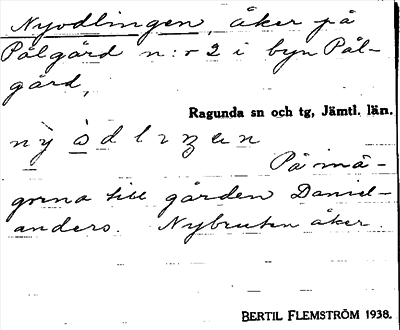 Nyodlingen, åker på
Pålgård n:r 2 i byn Pål-
gård,
Ragunda sn och tg, Jämtl. län.
På må-
gorna till gården Daniel-
anders. Nybruten åker.
BERTIL FLEMSTRÖM 1938.